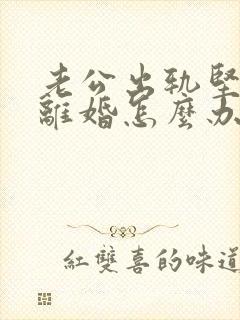 老公出軌堅
離婚怎麼办
紅雙喜的味道